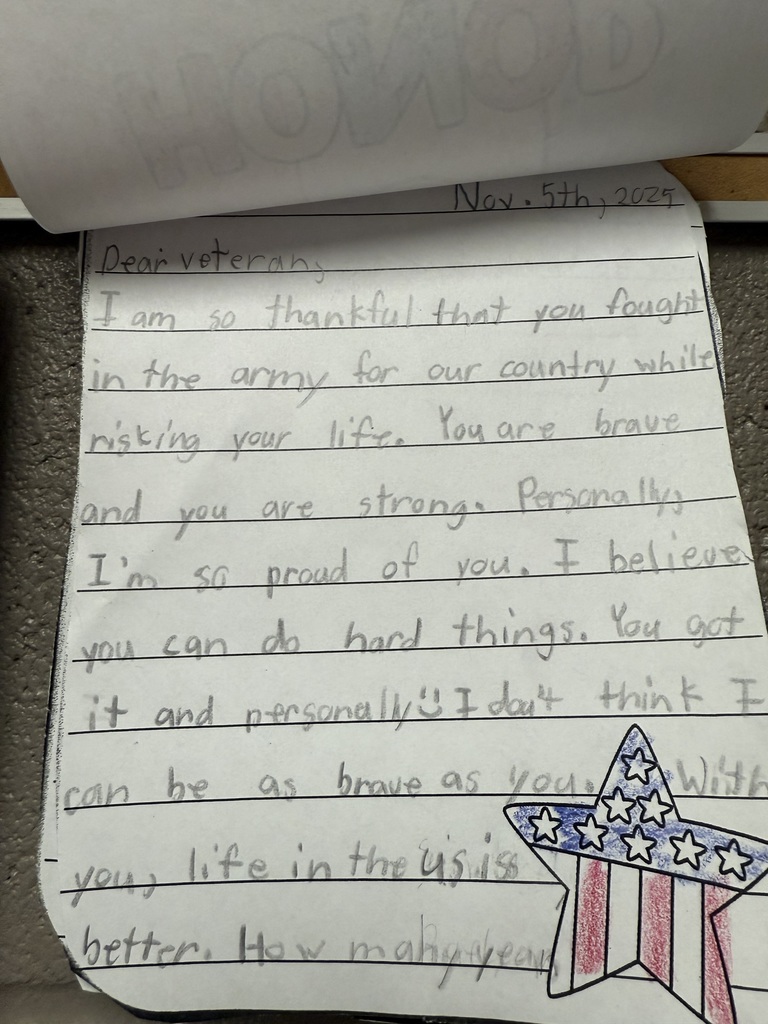 HONOR
Nov. 5th, 2025
Dear veteran,
I am so thankful that you fought
in the army for our country while
risking your life. You are brave
and you are strong. Personally,
I'm so proud of you. I believe
you can do hard things. You got
it and personally I don't think I
can be as brave as you. With
you, life in the us is
better. How many year